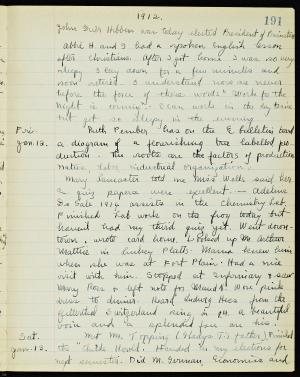 1912.
191
John Grier Hibben was today elected President of Princeton
Abbie H. and I had a spoken English lesson
after Christians. After I got home I was so very
sleepy I lay down for a few minutes and
soon retired. I understand now as never
before the force of these words "Work for the
night is coming". I can work in the day time
but get so sleepy in the evening.
Fri. Ruth Pember has on the E. bulletin board
Jan. 12. a diagram of a flourishing tree labelled pro-
duction. The roots are the factors of production
nature, labor, industrial organization.
Mary Lancaster told me Miss Wells said her
quiz papers were excellent. Adeline
De Sale 1914 assists in the Chemistry Lab.
Finished Lab work on the frog today but
haven't had my third quiz yet. Went down-
town, wrote card home, looked up Mr. Arthur
Mattice in Platt. Mama knew him
when she was at Fort Plain. Had a nice
visit with him. Stopped at Infirmary & saw
Mary Ross & left note for Maude. Wore pink
dress to dinner. Heard Ludwig Hess from
Switzerland sing in a beautiful
voice and a splendid fire on his.
Sat. Met Mr. Topping (Gladys T's father). Finished
Jan. 13. the Novel. Handed in my elections for
next semester. Did M. German, Economics and